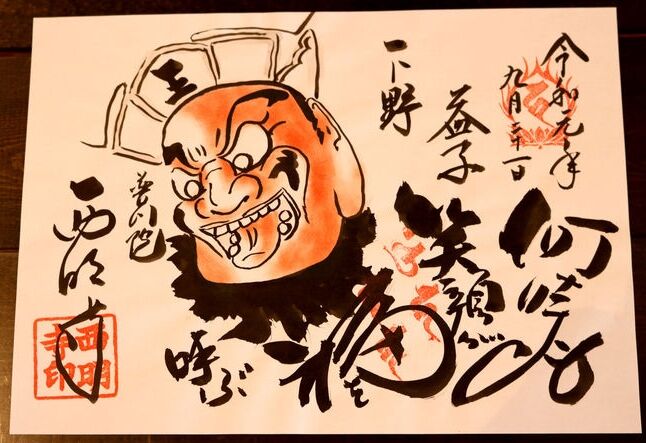 令和元年
九月
何時も
笑顔が
福を
呼ぶ
下野
益子
王
普門院
西明寺
西明
寺印